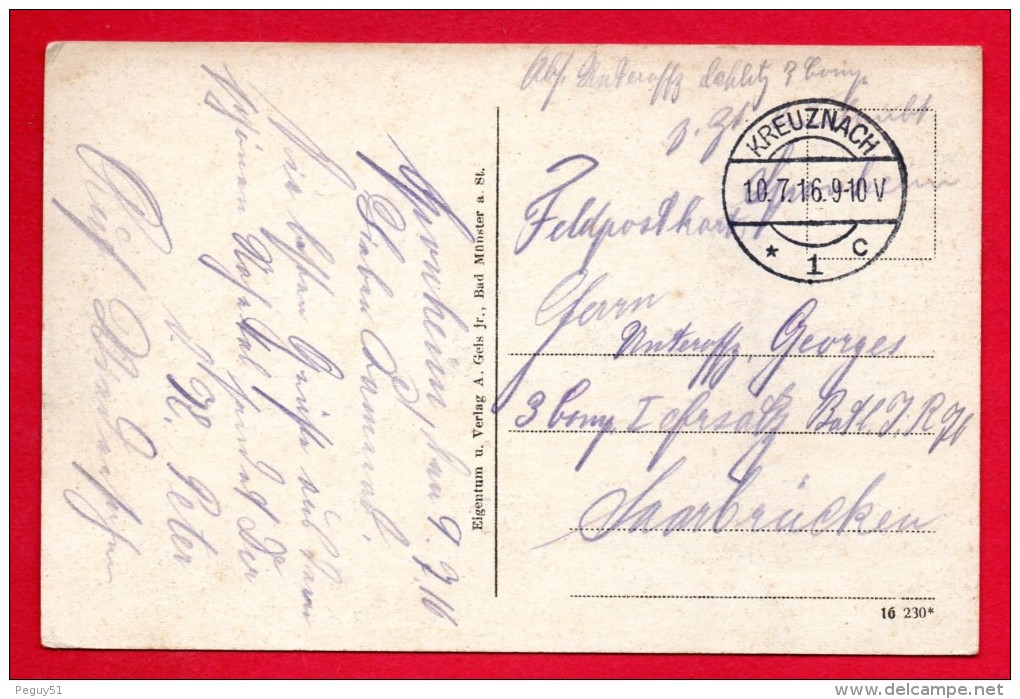 Abs. Unteroffz 3 Comp.
z. Zt.
KREUZNACH
10.7.16.9-10 V
* 1 c
Feldpostkarte
Herrn
Unteroffz. Georges
3 Comp. I Ersatz Batl. I. R 70
Saarbrücken
16 230*
Eigentum u. Verlag A. Gels jr., Bad Münster a. St.
Sponheim, den 9.7.16
Lieben Kamerad,
Die besten Grüße aus dem
schönen Nahetal sendet Dir
K. Peter
Peguy51
delcampe.net